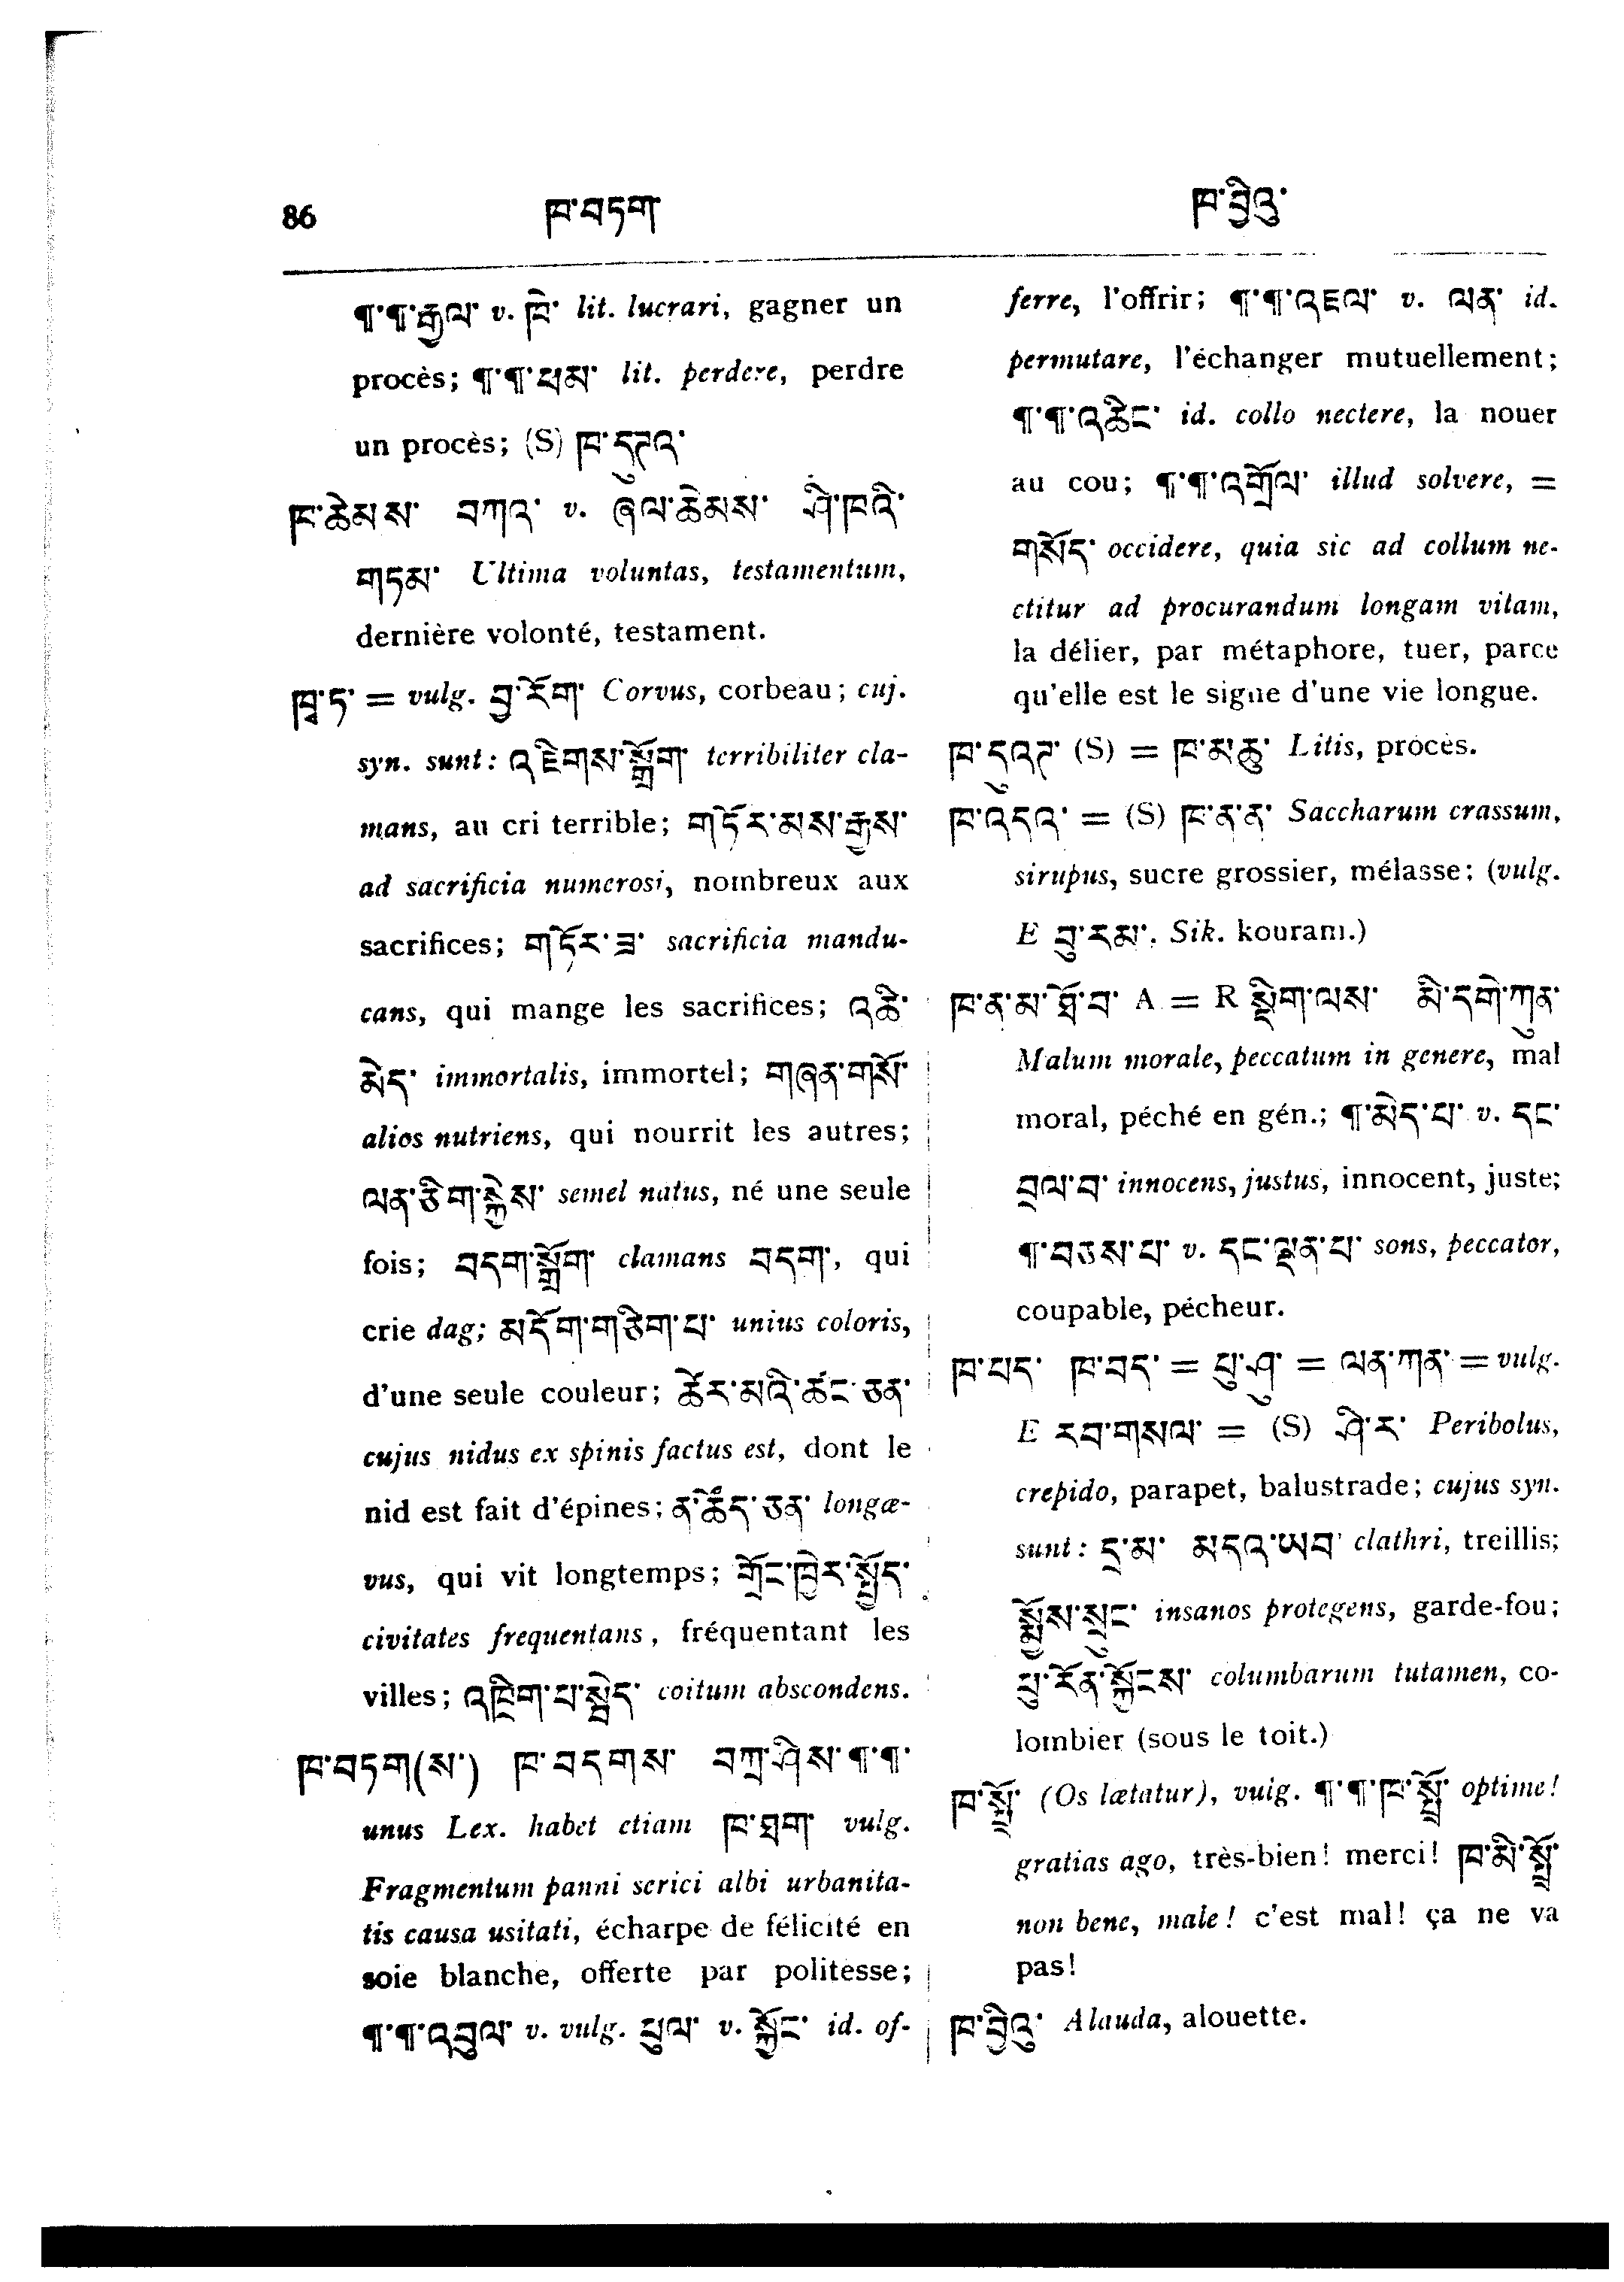 86
ཁ་བཏག
ཁ་བྱིའུ་
¶་¶་རྒྱལ་ v. ཁེ་ lit. lucrari, gagner un
procès; ¶་¶་ཕམ་ lit. perdere, perdre
un procès; (S)
ཁ་ཆེམས་ བཀའ་ v. ཞལ་ཆེམས་ ཤི་ཁའི་
གཏམ་ Ultima voluntas, testamentum,
dernière volonté, testament.
ཁྭ་ཏ་ = vulg. བྱ་རོག་ Corvus, corbeau; cuj.
syn. sunt: འཇིགས་སྒྲོག་ terribiliter cla-
mans, au cri terrible; གཏོར་མས་རྒྱས་
ad sacrificia numerosi, nombreux aux
sacrifices; གཏོར་ཟ་ sacrificia mandu-
cans, qui mange les sacrifices; འཆི་
མེད་ immortalis, immortel; གཞན་གསོ་
alios nutriens, qui nourrit les autres;
ལན་ཅིག་སྐྱེས་ semel natus, né une seule
fois; བདག་སྒྲོག་ clamans བདག་, qui
crie dag; མདོག་གཅིག་པ་ unius coloris,
d'une seule couleur; ཚེར་མའི་ཚང་ཅན་
cujus nidus ex spinis factus est, dont le
nid est fait d'épines; ན་ཚོད་ཅན་ longæ-
vus, qui vit longtemps; གྲོང་ཁྱེར་སྤྱོད་
civitates frequentans, fréquentant les
villes; འཁྲིག་པ་སྦེད་ coitum abscondens.
ཁ་བཏག(ས་) ཁ་བདགས་ བཀྲ་ཤིས་¶་¶་
unus Lex. habet etiam ཁ་ཐག་ vulg.
Fragmentum panni serici albi urbanita-
tis causa usitati, écharpe de félicité en
soie blanche, offerte par politesse;
¶་¶་འབུལ་ v. vulg. ཕུལ་ v. སྐྱོང་ id. of-
ferre, l'offrir; ¶་¶་འཇལ་ v. ལན་ id.
permutare, l'échanger mutuellement;
¶་¶་འཆིང་ id. collo nectere, la nouer
au cou; ¶་¶་འགྲོལ་ illud solvere, =
གསོད་ occidere, quia sic ad collum ne-
ctitur ad procurandum longam vitam,
la délier, par métaphore, tuer, parce
qu'elle est le signe d'une vie longue.
(S) = ཁ་མ་ཆུ་ Litis, procès.
ཁ་འདའ་ = (S) ཁ་ན་ན་ Saccharum crassum,
sirupus, sucre grossier, mélasse; (vulg.
E བུ་རམ་. Sik. kouram.)
ཁ་ན་མ་ཐོ་བ་ A = R སྡིག་ལས་ མི་དགེ་ཀུན་
Malum morale, peccatum in genere, mal
moral, péché en gén.; ¶་མེད་པ་ v. དང་
བྲལ་བ་ innocens, justus, innocent, juste;
¶་བཅས་པ་ v. དང་ལྡན་པ་ sons, peccator,
coupable, pécheur.
ཁ་པད་ ཁ་བད་ = པུ་ཤུ་ = ལན་ཀན་ = vulg.
E རབ་གསལ་ = (S) ཤི་ར་ Peribolus,
crepido, parapet, balustrade; cujus syn.
sunt: དྲ་མ་ མདའ་ཡབ་ clathri, treillis;
སྨྱོས་སྲུང་ insanos protegens, garde-fou;
ཕུ་རོན་སྐྱོངས་ columbarum tutamen, co-
lombier (sous le toit.)
ཁ་སྤྲོ་ (Os lætatur), vulg. ¶་¶་ཁ་སྤྲོ་ optime!
gratias ago, très-bien! merci! ཁ་མི་སྤྲོ་
non bene, male! c'est mal! ça ne va
pas!
ཁ་བྱིའུ་ Alauda, alouette.